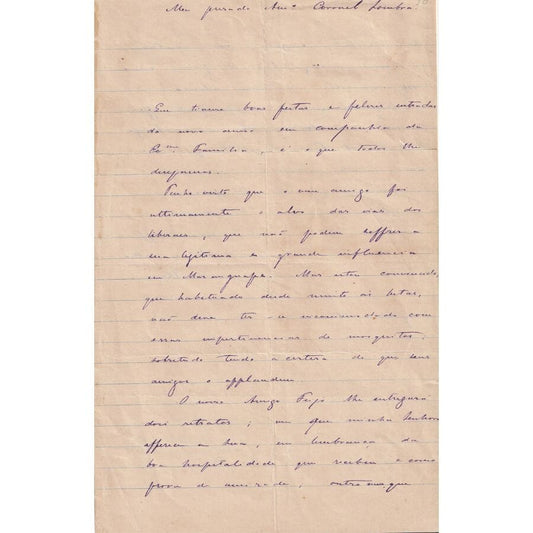 Meu presado Amº Coronel Sombra.
Que tivesse boas festas e felizes entradas
do novo anno em companhia da
Exmª. Familia, é o que todos lhe
desejamos.
Tenho visto que o meu amigo foi
ultimamente o alvo das iras dos
liberaes, que não podem soffrer a
sua legitima e grande influencia
em Maranguape. Mas estou convencido,
que habituado desde muito ás lutas,
não deve ter-se incommodado com
essas impertinencias de mosquitos,
sobretudo tendo a certeza de que seus
amigos o applaudem.
O nosso Amigo lhe entregará
dois retratos; um que minha Senhora
offerece a sua, em lembrança da
boa hospitalidade que recebeu e como
prova de amizade, outro que